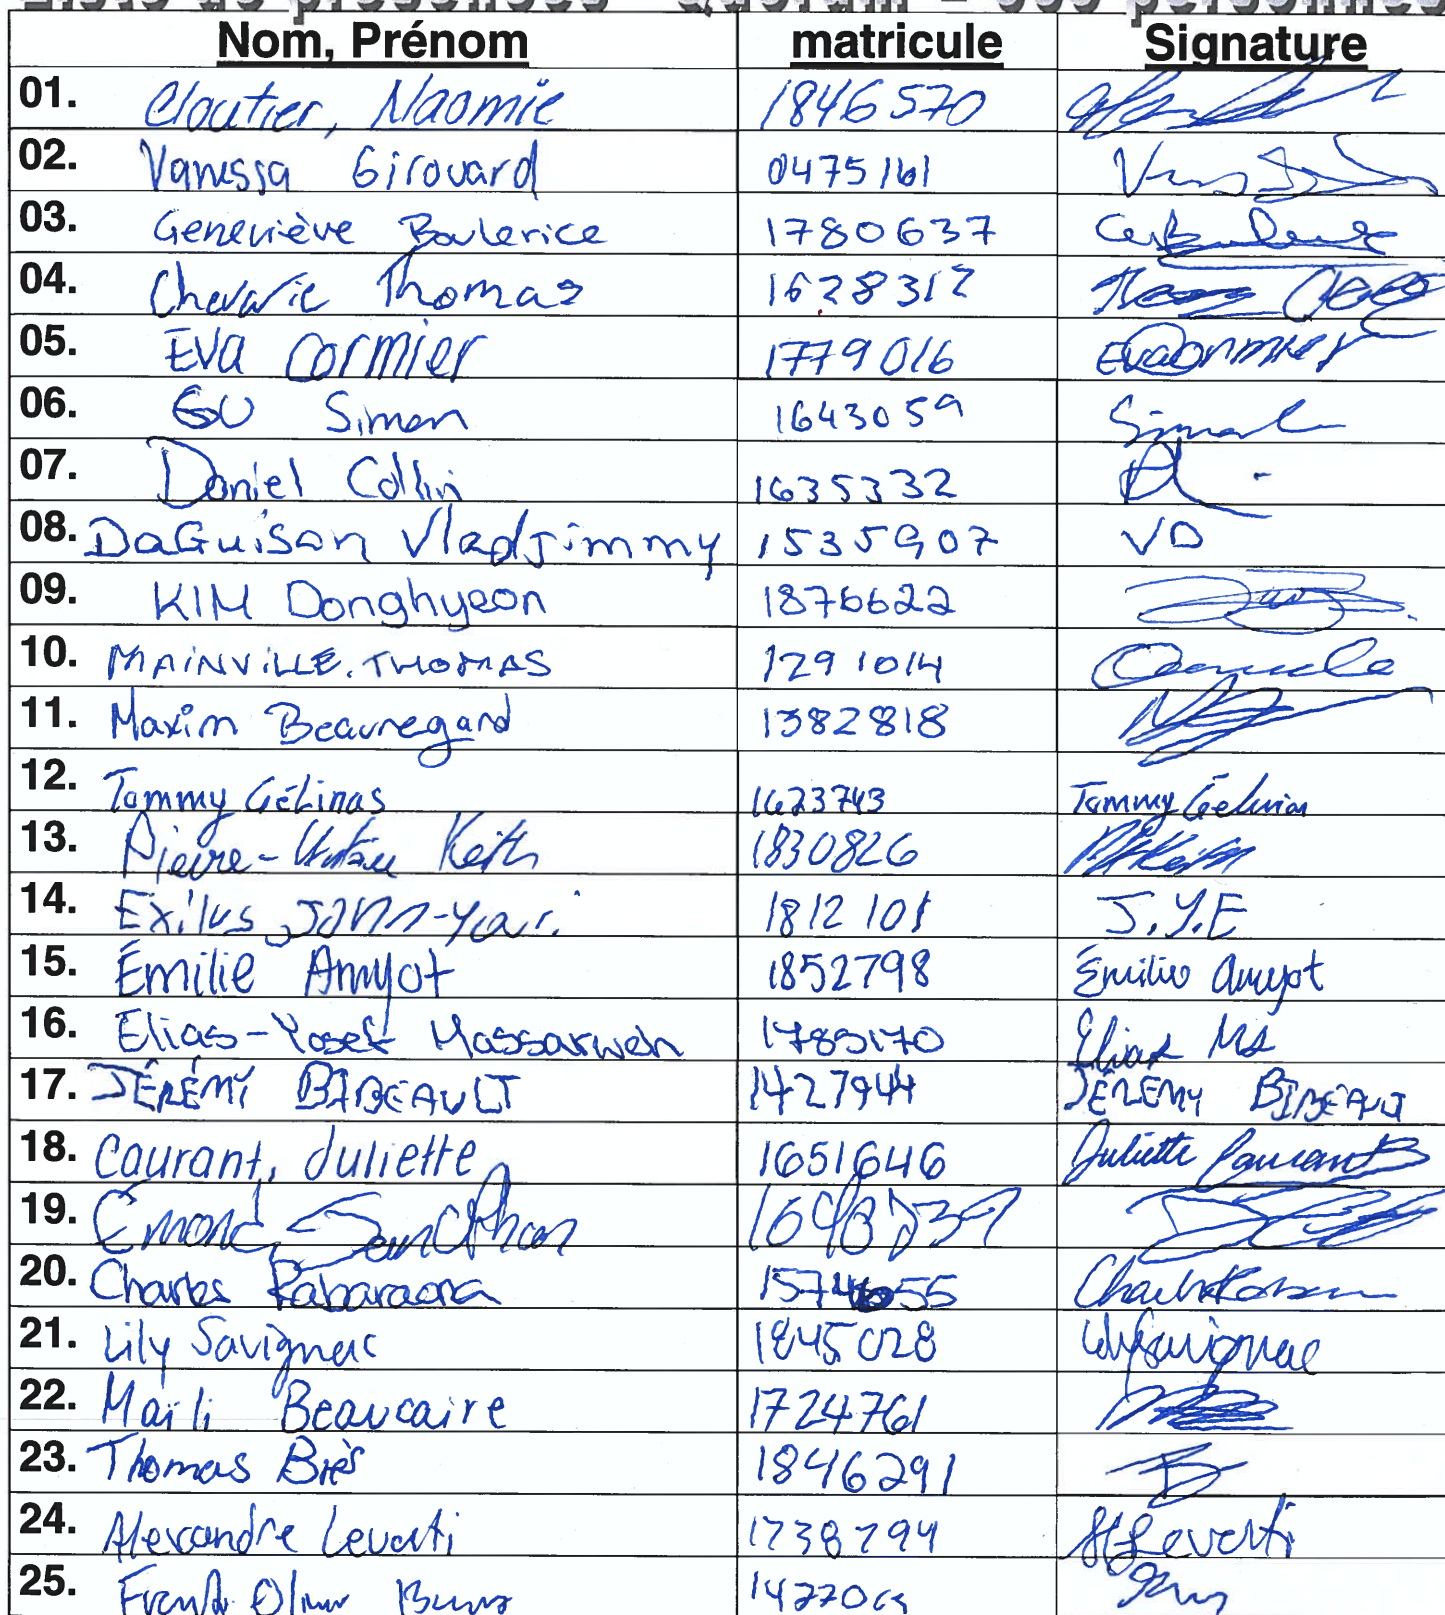 Liste de présences - Quorum = 300 personnes
Nom, Prénom matricule Signature
01. Cloutier, Naomie 1846570
02. Vanessa Girouard 0475161
03. Geneviève Boulerice 1780637
04. Chevarie Thomas 1628312
05. Eva Cormier 1779016 Eva Cormier
06. GU Simon 1643059
07. Daniel Collin 1635332
08. DaGuison Vladjimmy 1535907 VD
09. KIM Donghyeon 1876622
10. MAINVILLE. THOMAS 1291014
11. Maxim Beauregard 1382818
12. Tommy Gélinas 1623743 Tommy Gélinas
13. Pierre- Keith 1830826
14. Exilus, John-Youri 1812101 J.Y.E
15. Émilie Amyot 1852798 Émilie Amyot
16. Elias-Yosef Massarweh 1785170 Elias Ms
17. JÉRÉMY BIBEAULT 1427944 JÉRÉMY BIBEAULT
18. Courant, Juliette 1651646 Juliette Courant
19. Emond,
20. Charles Rabaraona
21. Lily Savignac 1845028 Lily Savignac
22. Maïli Beaucaire 1724761
23. Thomas Briès 1846291
24. Alexandre Leverti 1738794 Leverti
25.